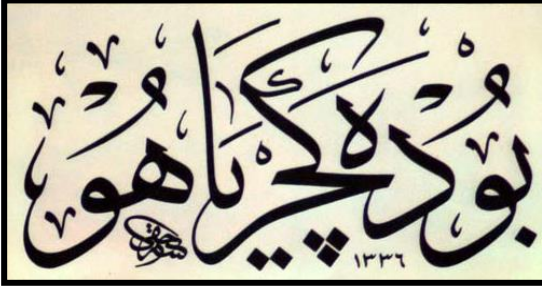 بُو دَه كَچَر يَا هُو
١٣٣٦